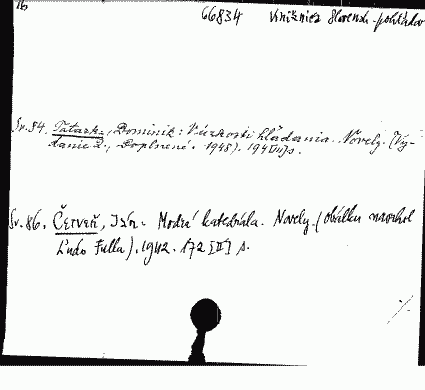 16
66834 Knižnica Slovensk. pohľadov
Sv. 84. Tatark., Dominik: V úzkosti hľadania. Novely. (Vy-
danie 2., doplnené. 1948). 194[III]s.
Sv. 86. Červeň, Ján. Modrá katedrála. Novely. (obálku navrhol
Ľudo Fulla). 1942. 172 [II] s.